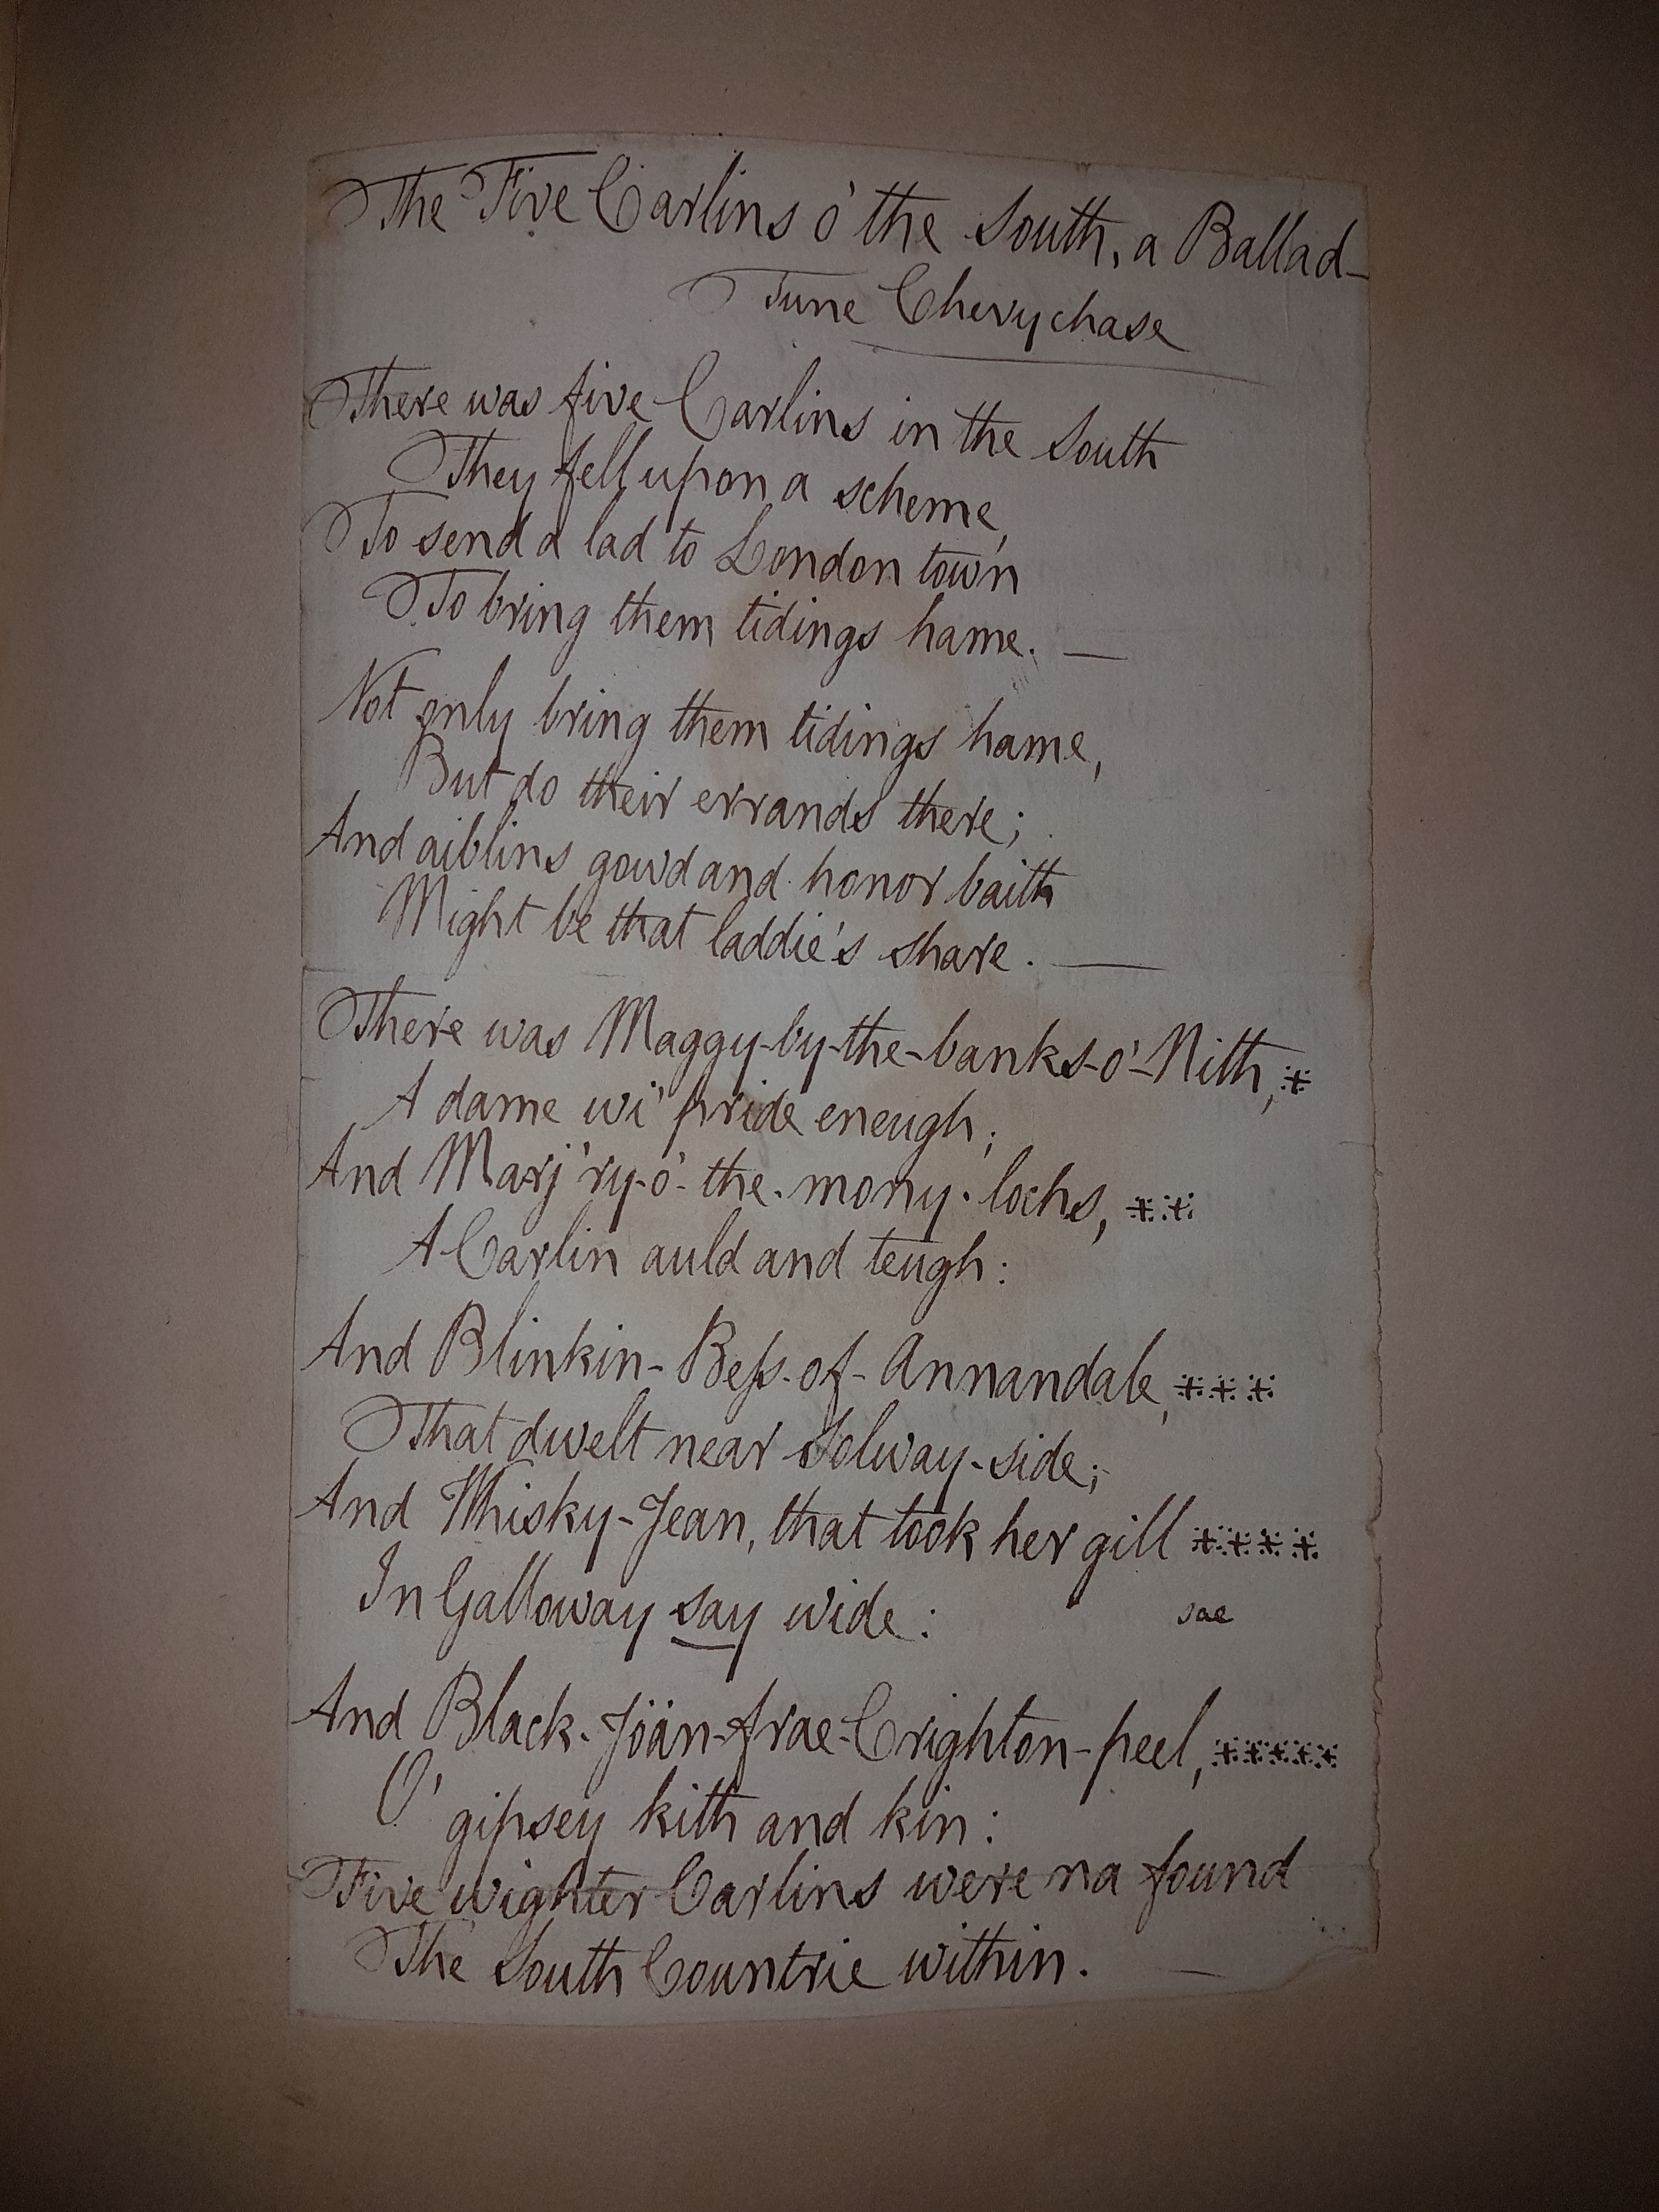 The Five Carlins o' the South, a Ballad—
Tune Chevy chase
There was five Carlins in the South
They fell upon a scheme
To send a lad to London town
To bring them tidings hame. —
Not only bring them tidings hame,
But do their errands there;
And aiblins gowd and honor baith
Might be that laddie's share. —
There was Maggy-by-the-banks-o'-Nith, ※
A dame wi' pride eneugh;
And Marj'ry-o'-the-mony-lochs, ※※
A Carlin auld and teugh:
And Blinkin-Bess-of-Annandale, ※※※
That dwelt near Solway-side;
And Whisky-Jean, that took her gill ※※※※
In Galloway say wide:
sae
And Black-Jöan-frae-Crighton-peel, ※※※※※
O' gipsey kith and kin:
Five wighter Carlins were na found
The South Countrie within. —